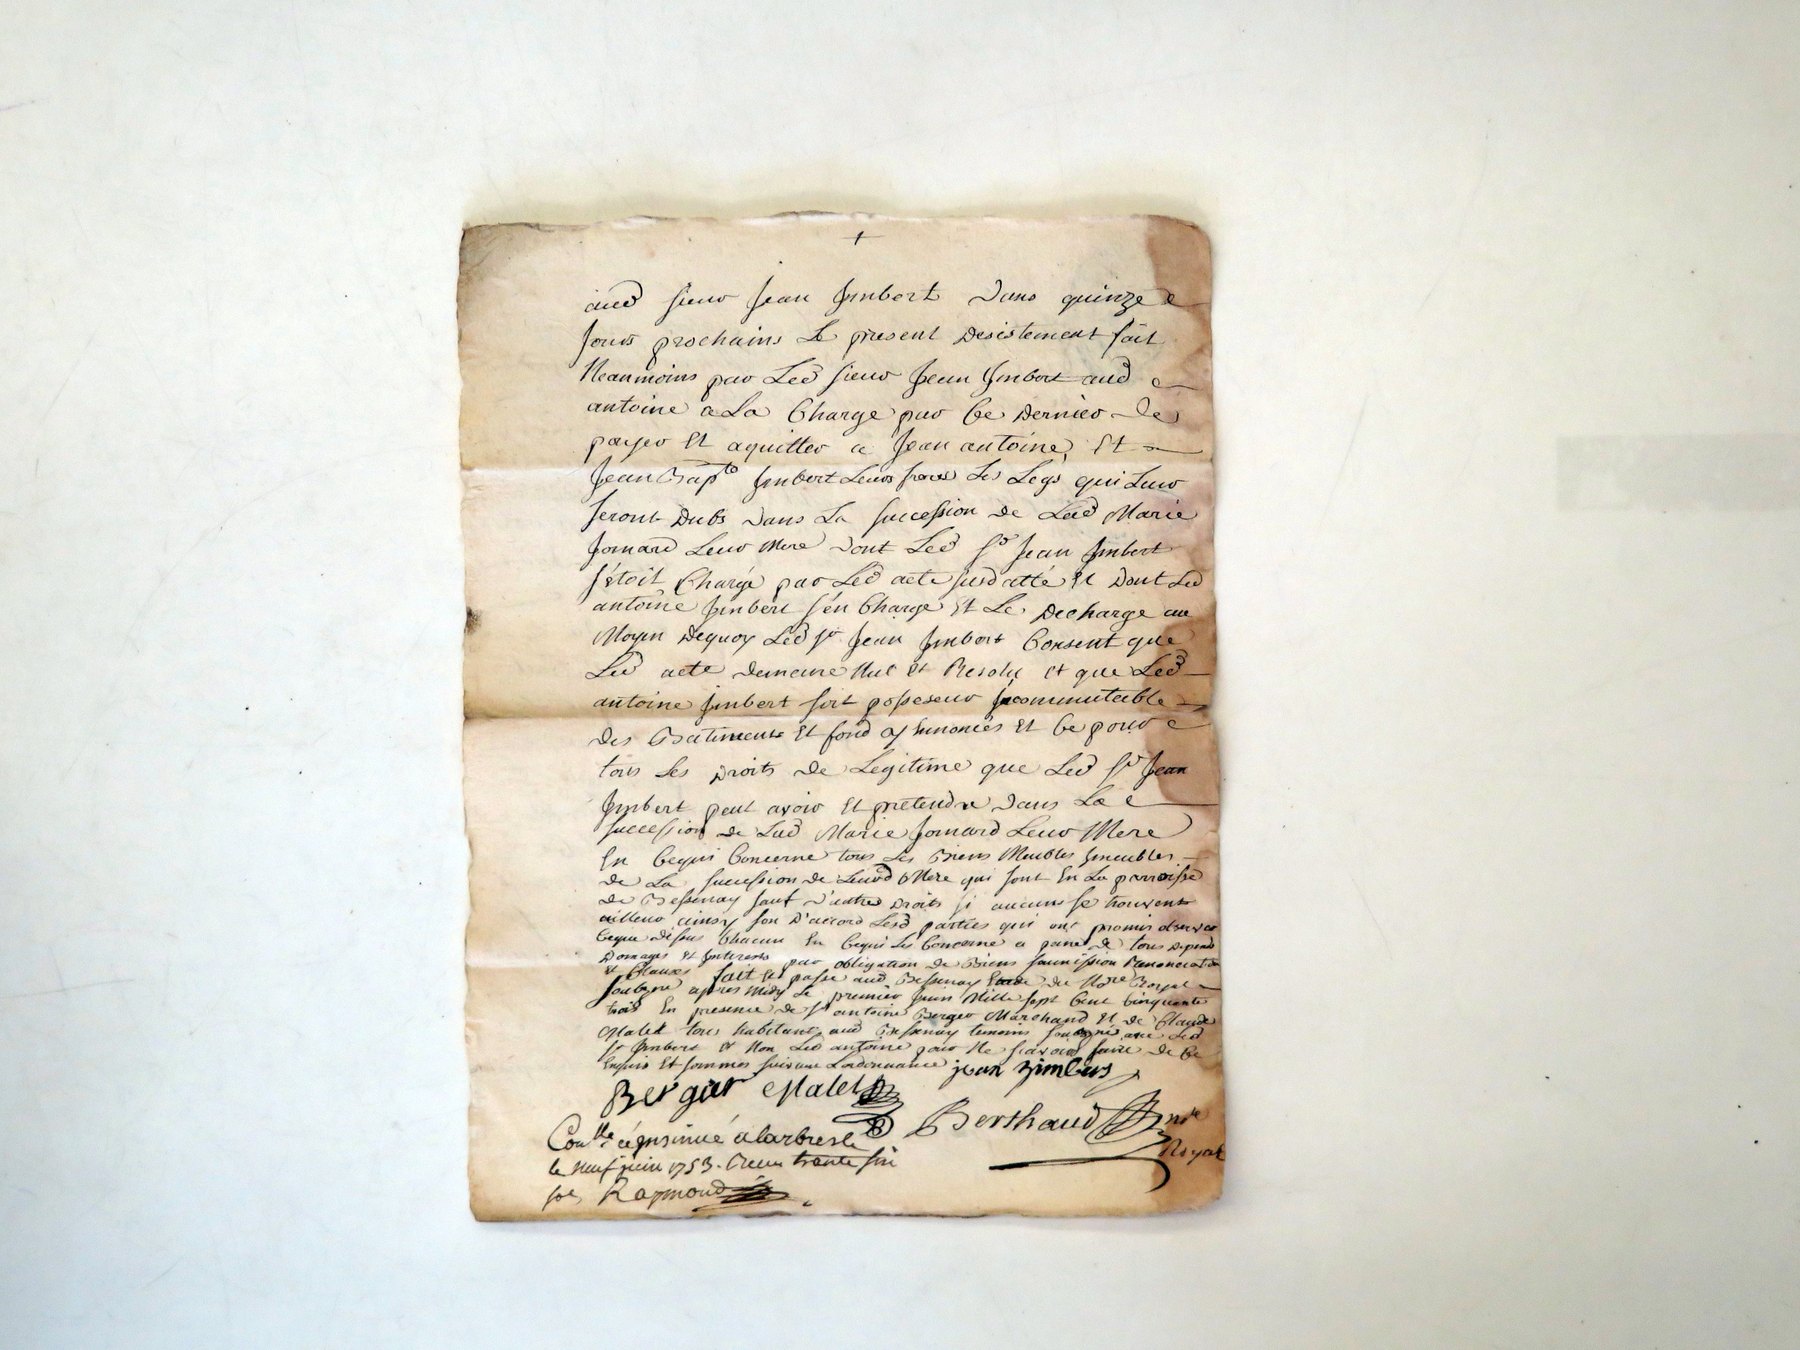 aud sieur Jean Imbert dans quinze
Jours prochains Le present Desistement fait
Neanmoins par Led sieur Jean Imbert aud
antoine a La Charge par Ce Dernier de
payer Et aquitter a Jean antoine, Et
Jean Bapte Imbert Leurs freres Les Legs qui Leur
seront Dubs dans La succession de Lad Marie
Jomard Leur Mere dont Led Sr Jean Imbert
s'étoit Chargé par Led acte susd atté Et Dont Led
antoine Imbert s'en Charge Et Le Decharge au
Moyen Dequoy Led Sr Jean Imbert Consent que
Led acte demeure Nul Et Resolu Et que Led
antoine Imbert soit possesseur Incommutable
des Batiments Et fond Enonces Et Ce pour
tous Les Droits de Legitime que Led Sr Jean
Imbert peut avoir Et pretendre dans La
succession de Lad Marie Jomard Leur Mere
En Cequi Concerne tous Les Biens Meubles Immeubles
de La succession de Leurd Mere qui sont En La parroisse
de Bessenay sauf d'autres Droits si aucuns se trouvent
ailleur ainsy son D'accord Lesd parties qui ont promis observer
Ceque dessus Chacun En Cequi Les Concerne a paine de tous Depend
Domages Et Interests par obligation de Biens soumission Renonciation
Et Clauses fait Et passé aud Bessenay Etude du Nore Royal
soubzne apres Midy Le premier Juin Mille sept Cent Cinquante
trois En presence de Sr antoine Berger Marchand Et de Claude
Malet tous habitants aud Bessenay temoins avec Led
Sr Imbert Et Non Led antoine pour Ne scavoir faire de Ce
Enquis Et sommes suivant Lordonnance jean Zimbers
Bergier Malet
Berthaud nre
Royal
Conlle et insinué a larbresle
le neuf juin 1753. Receu trente six
sols Raymond